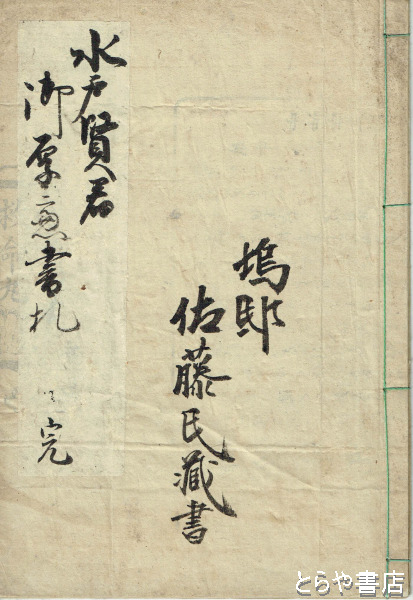 水戸賢君
御厚意書札
完
塢邸
佐藤氏藏書
とらや書店